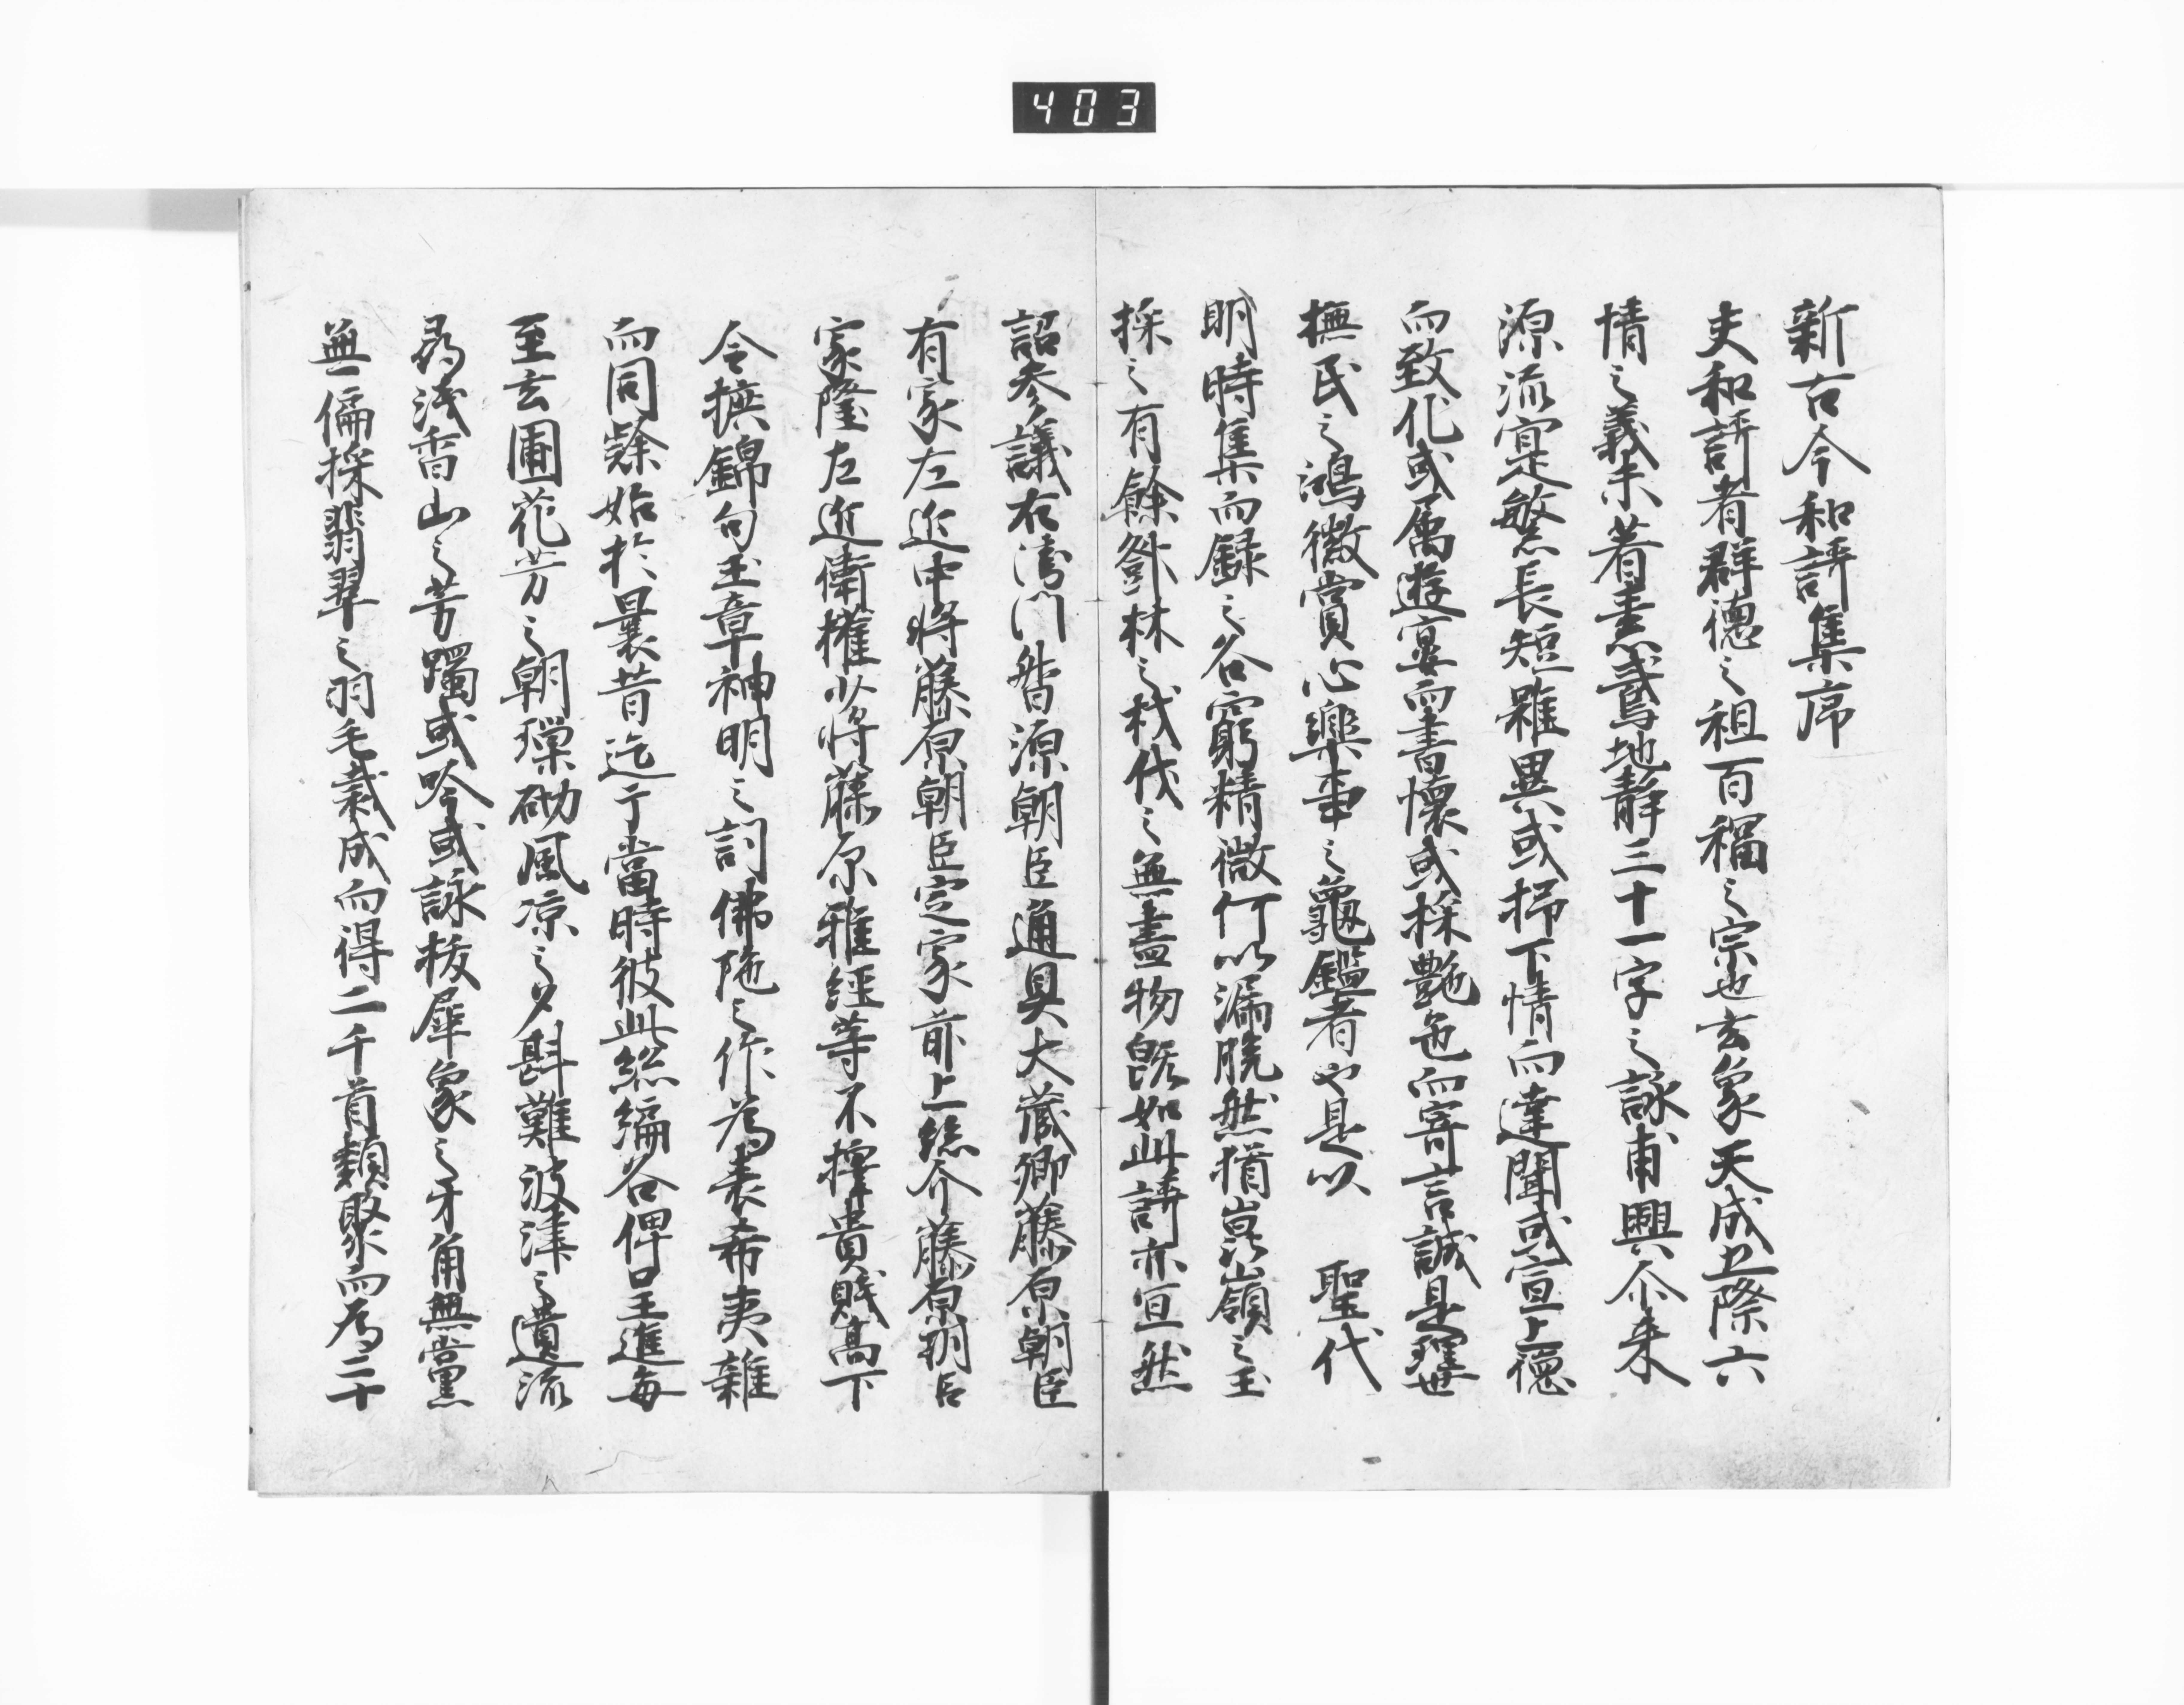 403
新古今和謌集序
夫和謌者群德之祖百福之宗也玄象天成五際六
情之義未著素鵞地靜三十一字之詠甫興尒来
源流寔繁長短雖異或抒下情而達聞或宣上德
而致化或属遊宴而書懷或採艶色而寄言誠是理世
撫民之鴻徽賞心樂事之龜鑑者也是以　聖代
明時集而録之各窮精微何以漏脱然猶崑嶺之玉
採之有餘鄧林之材伐之無盡物既如此謌亦宜然
詔参議右衛門督源朝臣通具大蔵卿藤原朝臣
有家左近中将藤原朝臣定家前上総介藤原朝臣
家隆左近衛権少将藤原雅經等不擇貴賤高下
令摭錦句玉章神明之詞佛陁之作為表希夷雜
而同隸始於曩昔迄于當時彼此総編各俾呈進毎
至玄圃花芳之朝璅砌風凉之夕斟難波津之遺流
尋浅香山之芳躅或吟或詠抜犀象之牙角無黨
無偏採翡翠之羽毛裁成而得二千首類聚而為二十